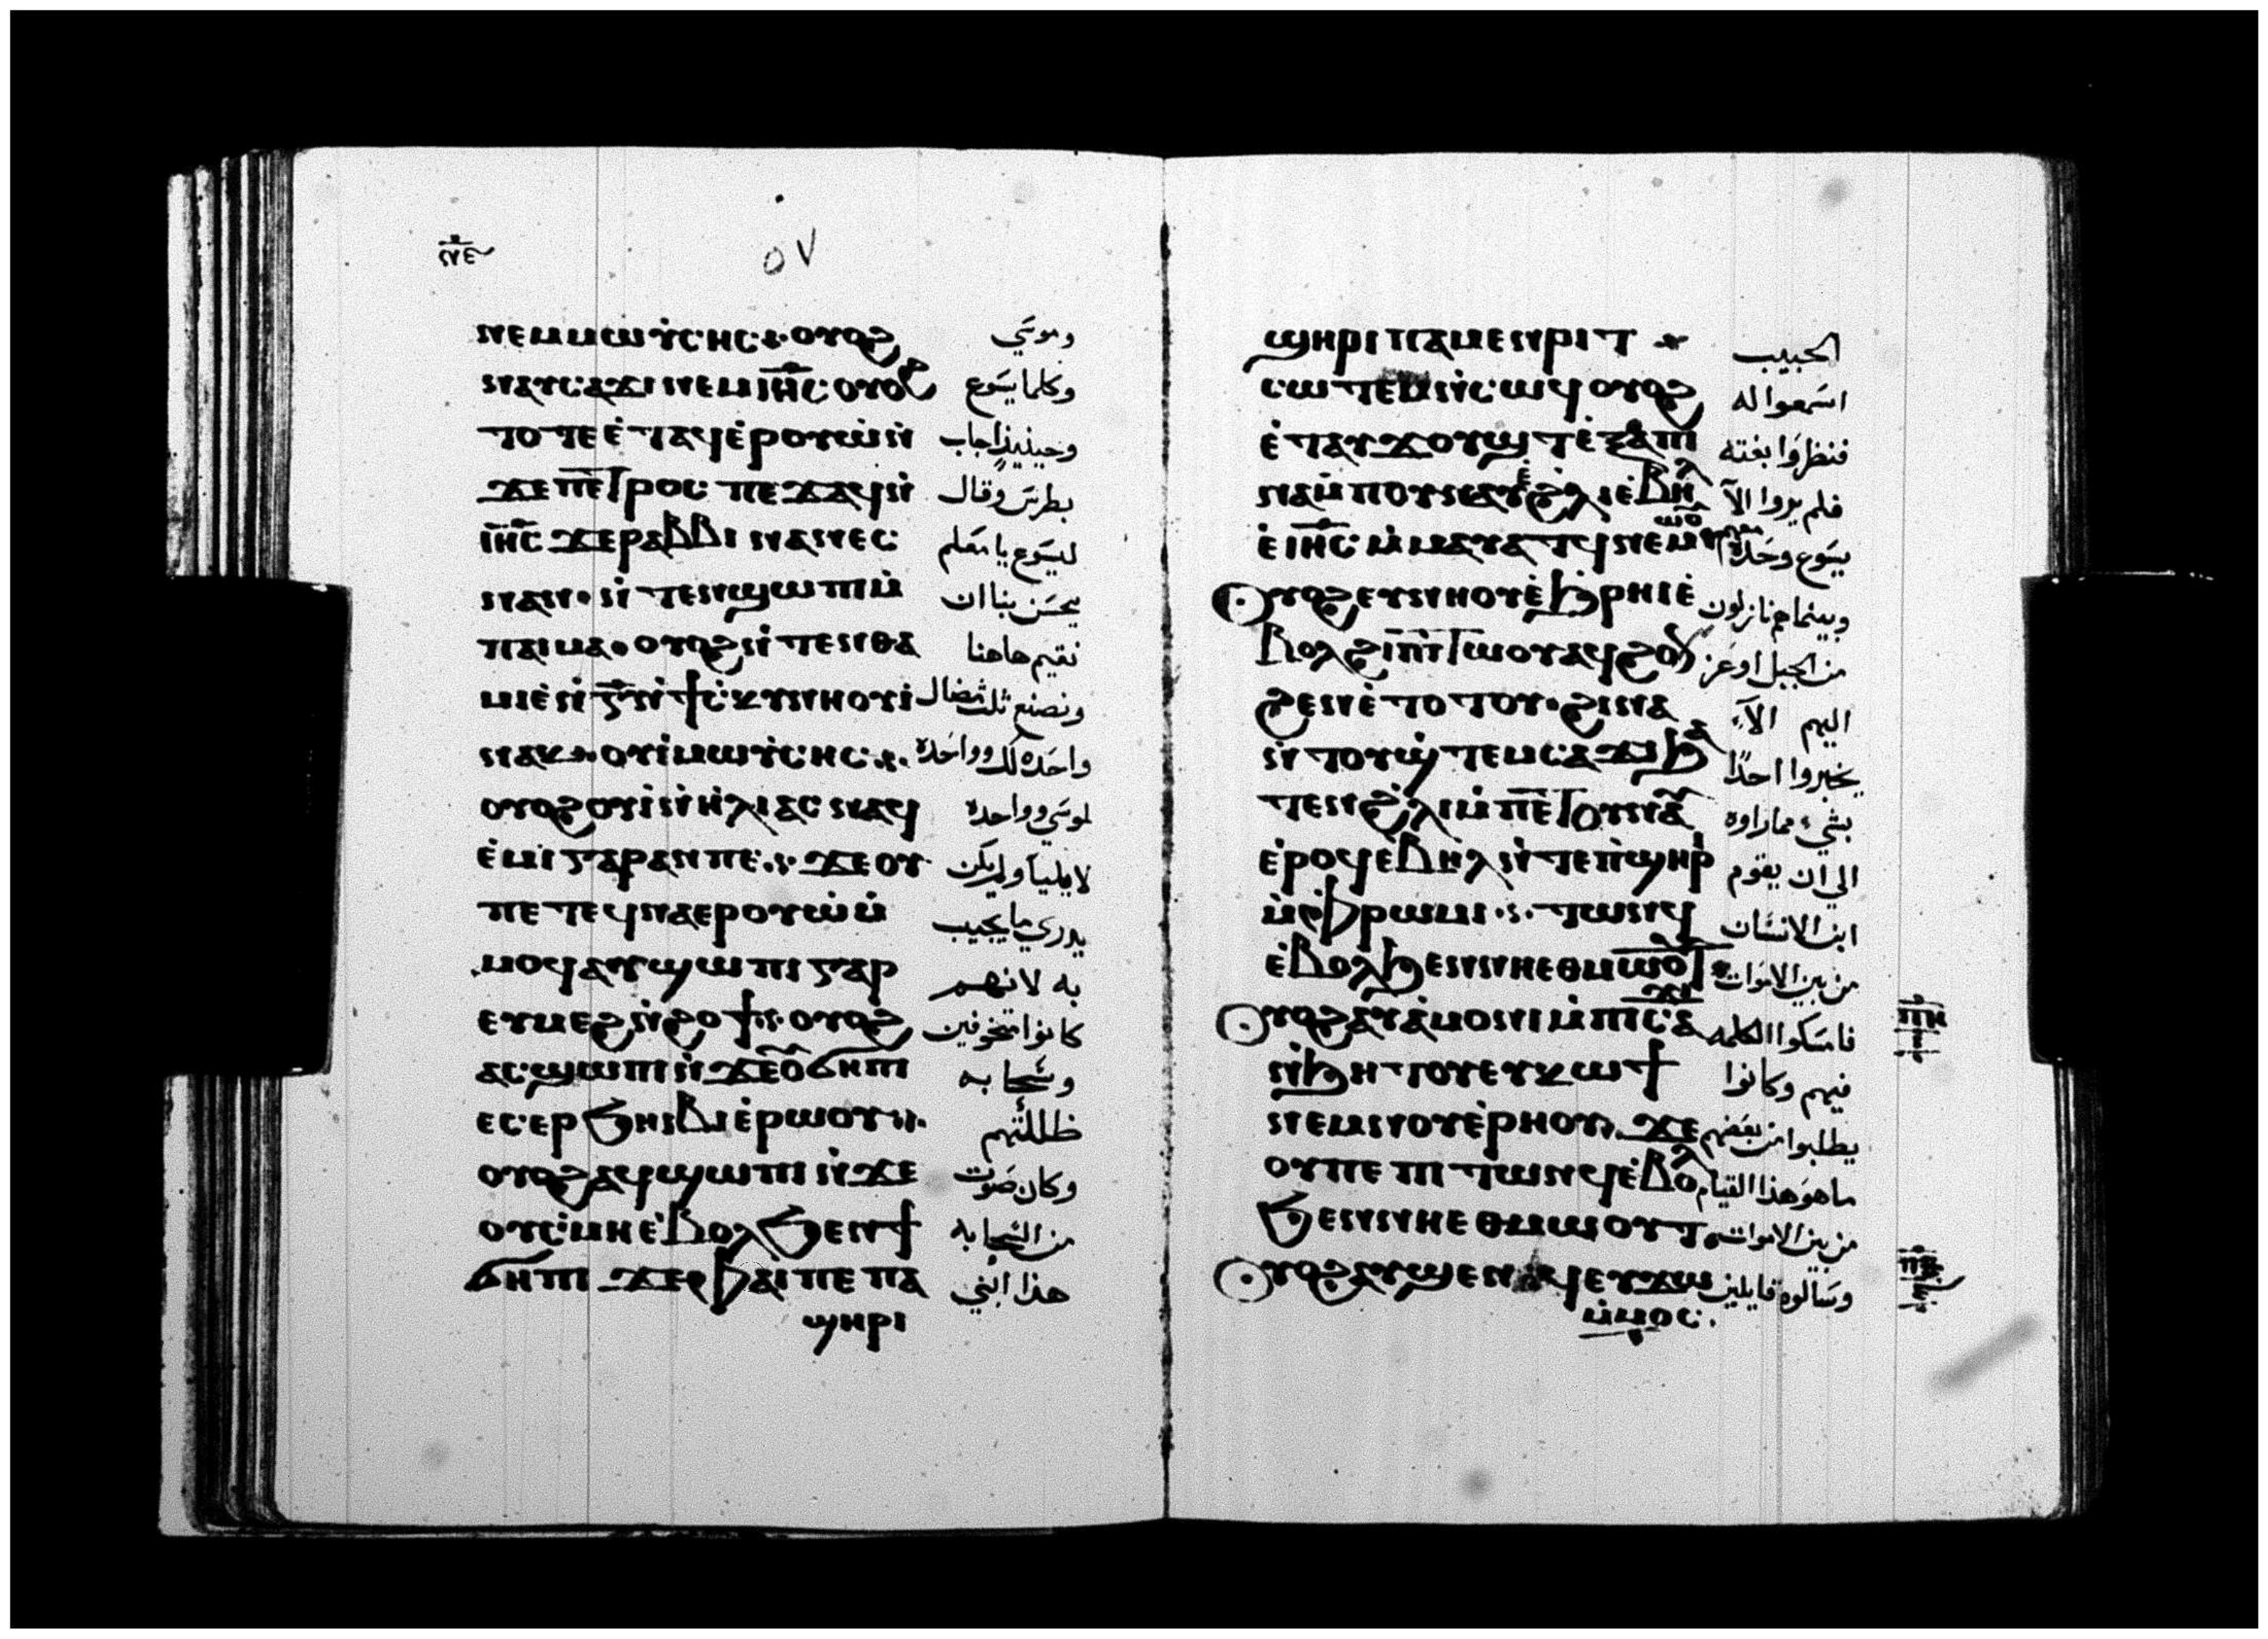 ⲛⲉ
٥٧
ⲛⲉⲙⲙⲱⲩⲥⲏⲥ ⲟⲩⲟϩ
وموسي
ⲛⲁⲩⲥⲁϫⲓ ⲛⲉⲙ ⲓⲏⲥ ⲟⲩⲟϩ
وكلما يسوع
ⲧⲟⲧⲉ ⲉⲧⲁϥⲉⲣⲟⲩⲱ ⲛ
وحينيذ اجاب
ϫⲉ ⲡⲉⲧⲣⲟⲥ ⲡⲉϫⲁϥ ⲛ
بطرس وقال
ⲓⲏⲥ ϫⲉ ⲣⲁⲃⲃⲓ ⲛⲁⲛⲉⲥ
ليسوع يا معلم
ⲛⲁⲛ ⲛⲧⲉⲛϣⲱⲡⲓ ⲙ
يحسن بنا ان
ⲡⲁⲓⲙⲁ ⲟⲩⲟϩ ⲛⲧⲉⲛⲑⲁ
نقيم هاهنا
ⲙⲓⲉ ⲛⲅ ⲛϯⲥⲕⲩⲛⲏ ⲟⲩⲓ
ونصنع ثلث مضال
ⲛⲁⲕ ⲟⲩⲓ ⲙⲙⲱⲩⲥⲏⲥ
واحده لك وواحده
ⲟⲩⲟϩ ⲟⲩⲓ ⲛⲏⲗⲓⲁⲥ ⲛⲁϥ
لموسي وواحده
ⲉⲙⲓ ⲅⲁⲣ ⲁⲛ ⲡⲉ ϫⲉ ⲟⲩ
لايليا ولم يكن
ⲡⲉⲧⲉϥⲛⲁⲉⲣⲟⲩⲱ ⲙ
يدري ما يجيب
ⲙⲟϥ ⲁⲩϣⲱⲡⲓ ⲅⲁⲣ
به لانهم
ⲉⲩⲙⲉϩ ⲛϩⲟϯ ⲟⲩⲟϩ
كانوا متخوفين
ⲁⲥϣⲱⲡⲓ ⲛϫⲉ ⲟ̄ϭⲏⲡⲓ
وسحابه
ⲉⲥⲉⲣϧⲏⲓⲃⲓ ⲉⲣⲱⲟⲩ
ظللتهم
ⲟⲩⲟϩ ⲁϥϣⲱⲡⲓ ⲛϫⲉ
وكان صوت
ⲟⲩⲥⲙⲏ ⲉⲃⲟⲗϧⲉⲛϯ
من السحابه
ϭⲏⲡⲓ ϫⲉ ⲫⲁⲓ ⲡⲉ ⲡⲁ
هذا ابني
ϣⲏⲣⲓ
ϣⲏⲣⲓ ⲡⲁⲙⲉⲛⲣⲓⲧ
الحبيب
ⲥⲱⲧⲉⲙ ⲛⲥⲱϥ ⲟⲩⲟϩ
اسمعوا له
ⲉⲧⲁⲩϫⲟⲩϣⲧ ⲉⲝⲁⲡⲓ
فنظروا بغته
ⲛⲁⲙⲡⲟⲩⲛⲁⲩ ⲉϩⲗⲓ ⲉⲃⲏⲗ
فلم يروا الا
ⲉⲓⲏⲥ ⲙⲙⲁⲩⲁⲧϥ ⲛⲉⲙⲱⲟⲩ
يسوع وحده معهم
ⲟⲩⲟϩ ⲉⲩⲛⲏⲟⲩ ⲉϧⲣⲏⲓ ⲉ
وبينما هم نازلون
ⲃⲟⲗ ϩⲓ ⲡⲓⲧⲱⲟⲩ ⲁϥϩⲟⲛ
من الجبل اوعز
ϩⲉⲛ ⲉⲧⲟⲧⲟⲩ ϩⲓⲛⲁ
اليهم الا
ⲛⲧⲟⲩϣⲧⲉⲙⲥⲁϫⲓ ϧⲁ
يخبروا احدًا
ⲧⲉⲛ ϩⲗⲓ ⲙⲡⲉⲧⲟⲩⲛⲁⲩ
بشي مما راوه
ⲉⲣⲟϥ ⲉⲃⲏⲗ ⲛⲧⲉ ⲡϣⲏⲣ
الي ان يقوم
ⲙⲫⲣⲱⲙⲓ ⲧⲱⲛϥ
ابن الانسان
ⲉⲃⲟⲗϧⲉⲛ ⲛⲏ ⲉⲑⲙⲱⲟⲩⲧ
من بين الاموات
ⲟⲩⲟϩ ⲁⲩⲁⲙⲟⲛⲓ ⲙⲡⲓⲥⲁϫⲓ
فامسكوا الكلمه
ⲡⲏ
ⲛϧⲏⲧⲟⲩ ⲉⲩⲕⲱϯ
فيهم وكانوا
ⲛⲉⲙ ⲛⲟⲩⲉⲣⲏⲟⲩ ϫⲉ
يطلبوا من بعضهم
ⲟⲩ ⲡⲉ ⲡⲓⲧⲱⲛϥ ⲉⲃⲟⲗ
ما هو هذا القيام
ϧⲉⲛ ⲛⲏ ⲉⲑⲙⲱⲟⲩⲧ
من بين الاموات
ⲟⲩⲟϩ ⲁⲩϣⲉⲛϥ ⲉⲩϫⲱ
وسالوه قايلين
ⲙⲙⲟⲥ